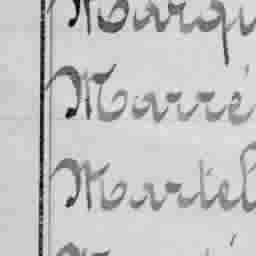 Marqu
Marré
Martel